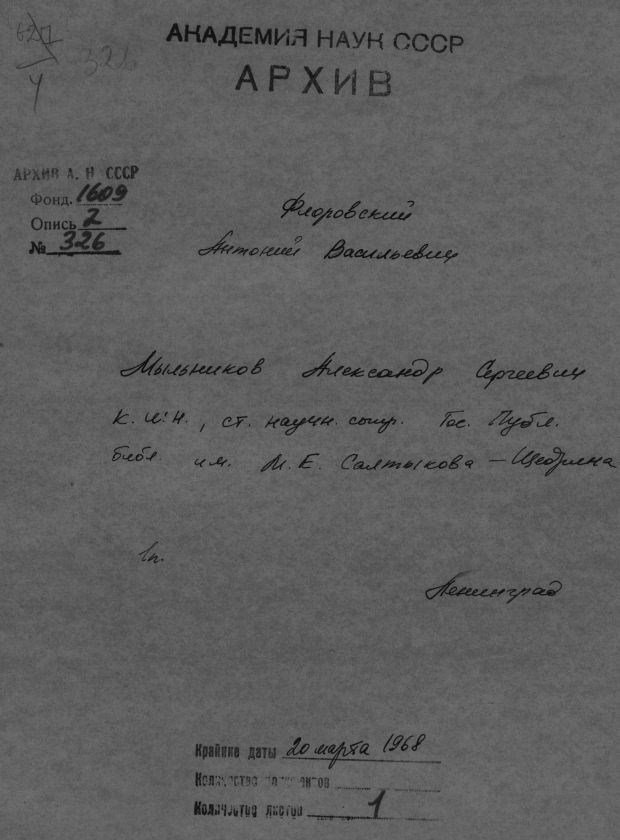 627
4
326
АКАДЕМИЯ НАУК СССР
АРХИВ
АРХИВ А. Н. СССР
Фонд. 1609
Опись 2
№ 326
Флоровский
Антоний Васильевич
Мыльников Александр Сергеевич
к. и. н., ст. научн. сотр. Гос. Публ.
библ. им. М. Е. Салтыкова-Щедрина
1п.
Ленинград
Крайние даты 20 марта 1968
Количество документов
Количество листов 1